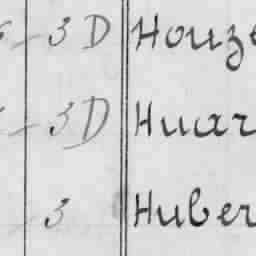 3 D Houze
3 D Huar
3 Huber